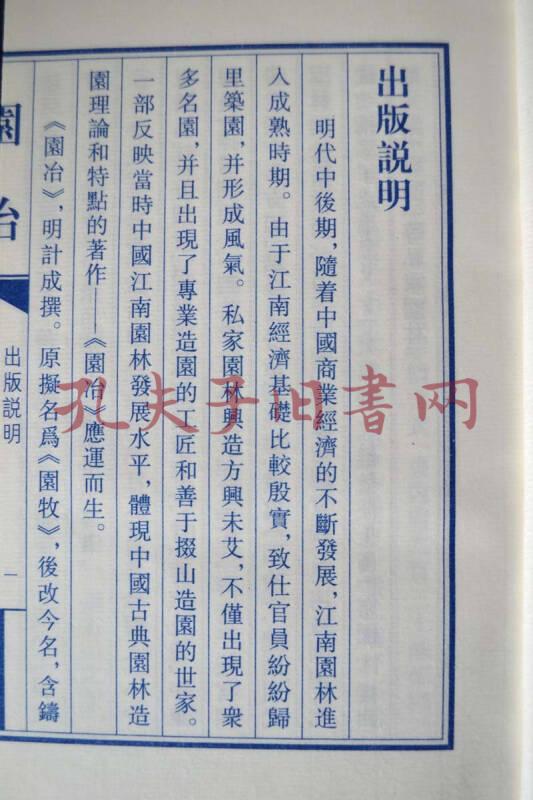 出版説明
明代中後期，隨着中國商業經濟的不斷發展，江南園林進
入成熟時期。由于江南經濟基礎比較殷實，致仕官員紛紛歸
里築園，并形成風氣。私家園林興造方興未艾，不僅出現了衆
多名園，并且出現了專業造園的工匠和善于掇山造園的世家。
一部反映當時中國江南園林發展水平，體現中國古典園林造
園理論和特點的著作——《園冶》應運而生。
《園冶》，明計成撰。原擬名爲《園牧》，後改今名，含鑄
園冶
出版説明
一
孔夫子旧书网